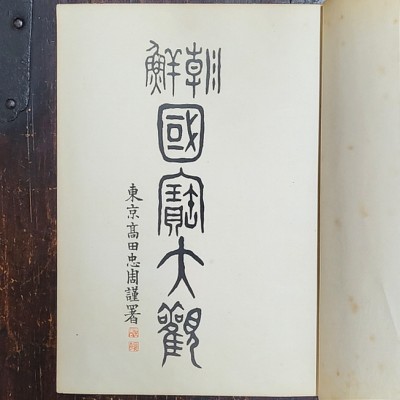 朝鮮
國寶大觀
東京高田忠周謹署